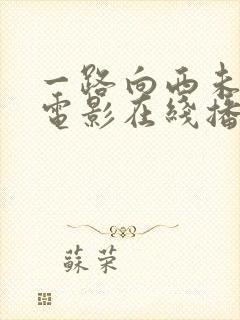 一路向西未
電影在綫播
蘇荣